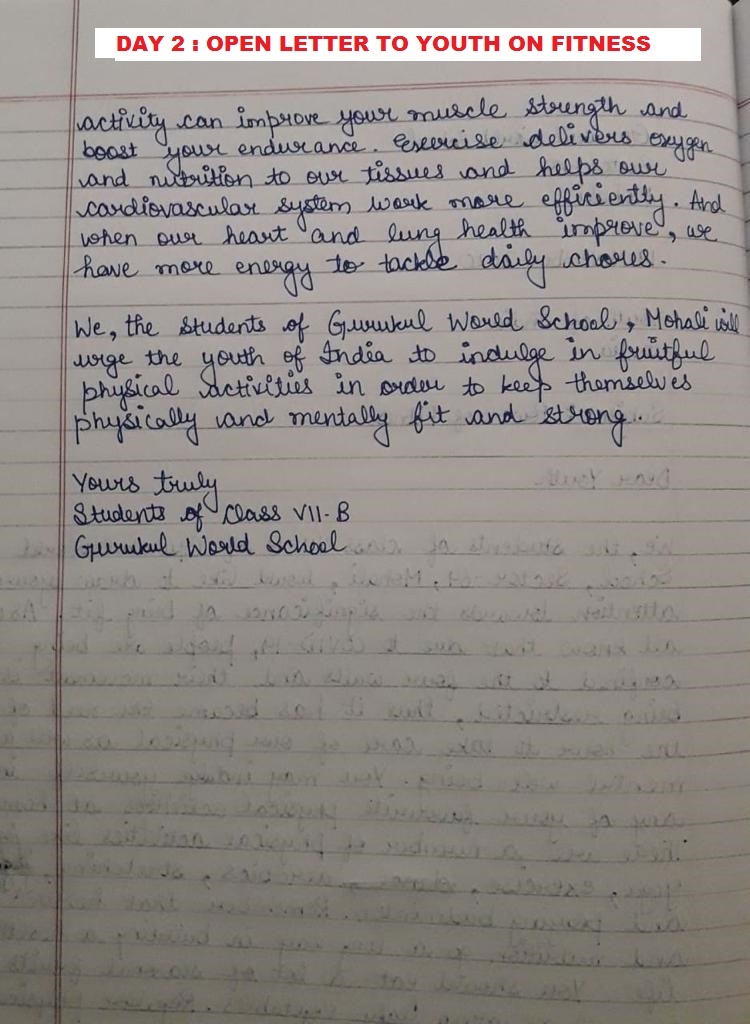 DAY 2 : OPEN LETTER TO YOUTH ON FITNESS
activity can improve your muscle strength and
boost your endurance. Exercise delivers oxygen
and nutrition to our tissues and helps our
cardiovascular system work more efficiently. And
when our heart and lung health improve, we
have more energy to tackle daily chores.
We, the students of Gurukul World School, Mohali will
urge the youth of India to indulge in fruitful
physical activities in order to keep themselves
physically and mentally fit and strong.
Yours truly
Students of Class VII-B
Gurukul World School